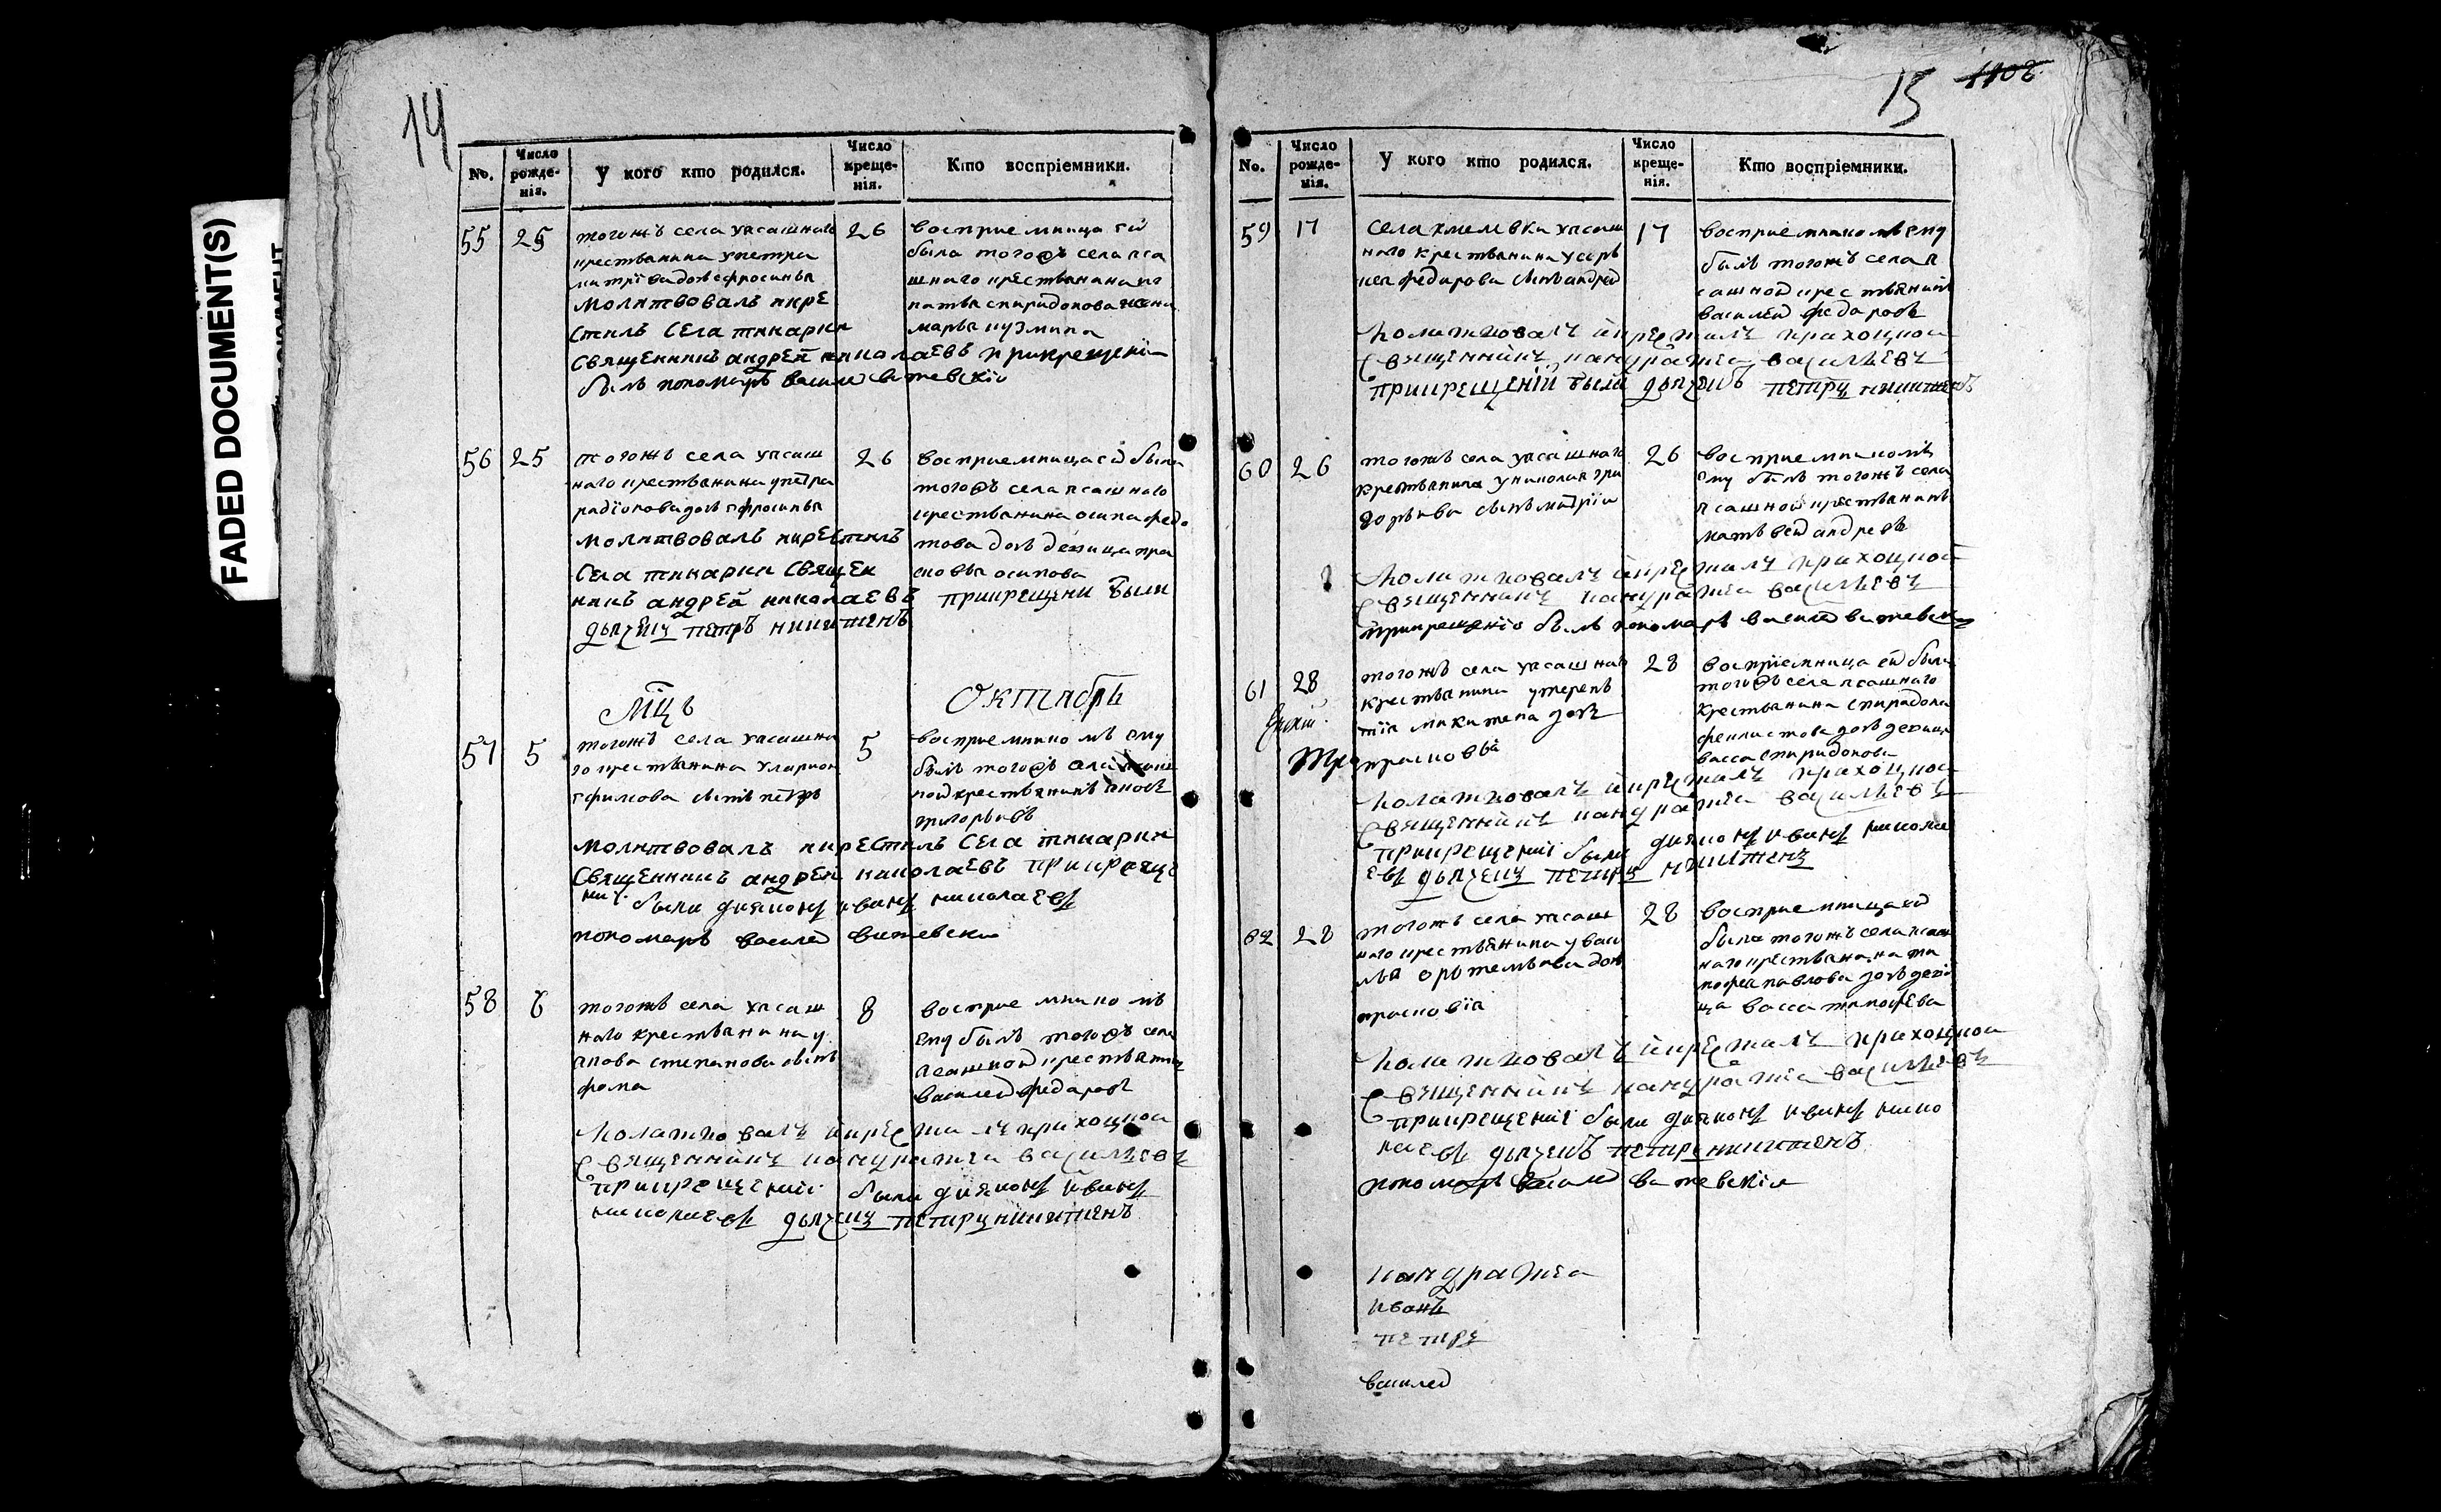 FADED DOCUMENT(S)
14
No.
Число рожденія.
У кого кто родился.
Число крещенія.
Кто воспріемники.
55
25
тогожъ села упсашнаго
крестьянина упетра
митрiева дочь ефросинья
молитвовалъ икре
стилъ села тинарки
священникъ андрей николаевъ прикрещенiи
былъ пономарь василей витевскiи
26
восприемница ей
была тогожъ села пса
шнаго крестьянина иг
натья спиридонова жена
марья кузмина
56
25
тогожъ села упсаш
наго крестьянина упетра
радiонова дочь ефросинья
молитвовалъ икрестилъ
села тинарки священ
никъ андрей николаевъ
дьячекъ петръ никитинъ
26
восприемница ей была
тогожъ села псашнаго
крестьянина осипа федо
това дочь девица пра
сковья осипова
прикрещени были
мцъ
Октябрь
57
5
тогожъ села упсашна
го крестьянина улариона
ефимова сынъ петръ
молитвовалъ икрестилъ села тинарки
священникъ андреи николаевъ прикреще
нии были дияконъ иванъ николаевъ
пономарь василей витевски
5
восприемникомъ ему
былъ тогожъ села псаш
ной крестьянинъ
григорьевъ
58
8
тогожъ села упсаш
наго крестьянина у
степанова сынъ
фома
молитвовалъ икрестилъ приходцкой
священникъ кандратеи васильевъ
прикрещенiи были дияконъ иванъ
николаевъ дьячекъ петръ никитинъ
8
восприемникомъ
ему былъ тогожъ села
псашной крестьянинъ
василей федаровъ
15
1108
No.
Число рожденія.
У кого кто родился.
Число крещенія.
Кто воспріемники.
59
17
села хмелевки упсаш
наго крестьянина усерь
гея федарова сынъ андрей
молитвовалъ икрестилъ приходцкой
священникъ кандратеи васильевъ
прикрещенiи были дьячекъ петръ никитинъ
17
восприемникомъ ему
былъ тогожъ села п
сашной крестьянинъ
василей федаровъ
60
26
тогожъ села упсашнаго
крестьянина униколая гри
горьева сынъ митрiи
молитвовалъ икрестилъ приходцкой
священникъ кандратеи васильевъ
прикрещенiе былъ пономарь василей витевски
26
восприемникомъ
ему былъ тогожъ села
псашной крестьянинъ
матьвей андреевъ
61
28
тогожъ села упсашнаго
крестьянина утерень
тiя микитена дочь
прасковья
молитвовалъ икрестилъ приходцкой
священникъ кандратеи васильевъ
прикрещенiи были дияконъ иванъ никола
евъ дьячекъ петръ никитинъ
28
восприемница ей была
тогожъ села псашнаго
крестьянина спиридона
феклистова дочь девица
васса спиридонова
62
28
тогожъ села упсаш
наго крестьянина у васи
лья артемьева дочь
прасковiя
молитвовалъ икрестилъ приходцкой
священникъ кандратеи васильевъ
прикрещенiи были дияконъ иванъ нико
лаевъ дьячекъ петръ никитинъ
пономарь василей витевскiи
28
восприемница ей
была тогожъ села псаш
наго крестьянина ти
мофея павлова дочь деви
ца васса тимофеева
кандратеи
иванъ
петръ
василей